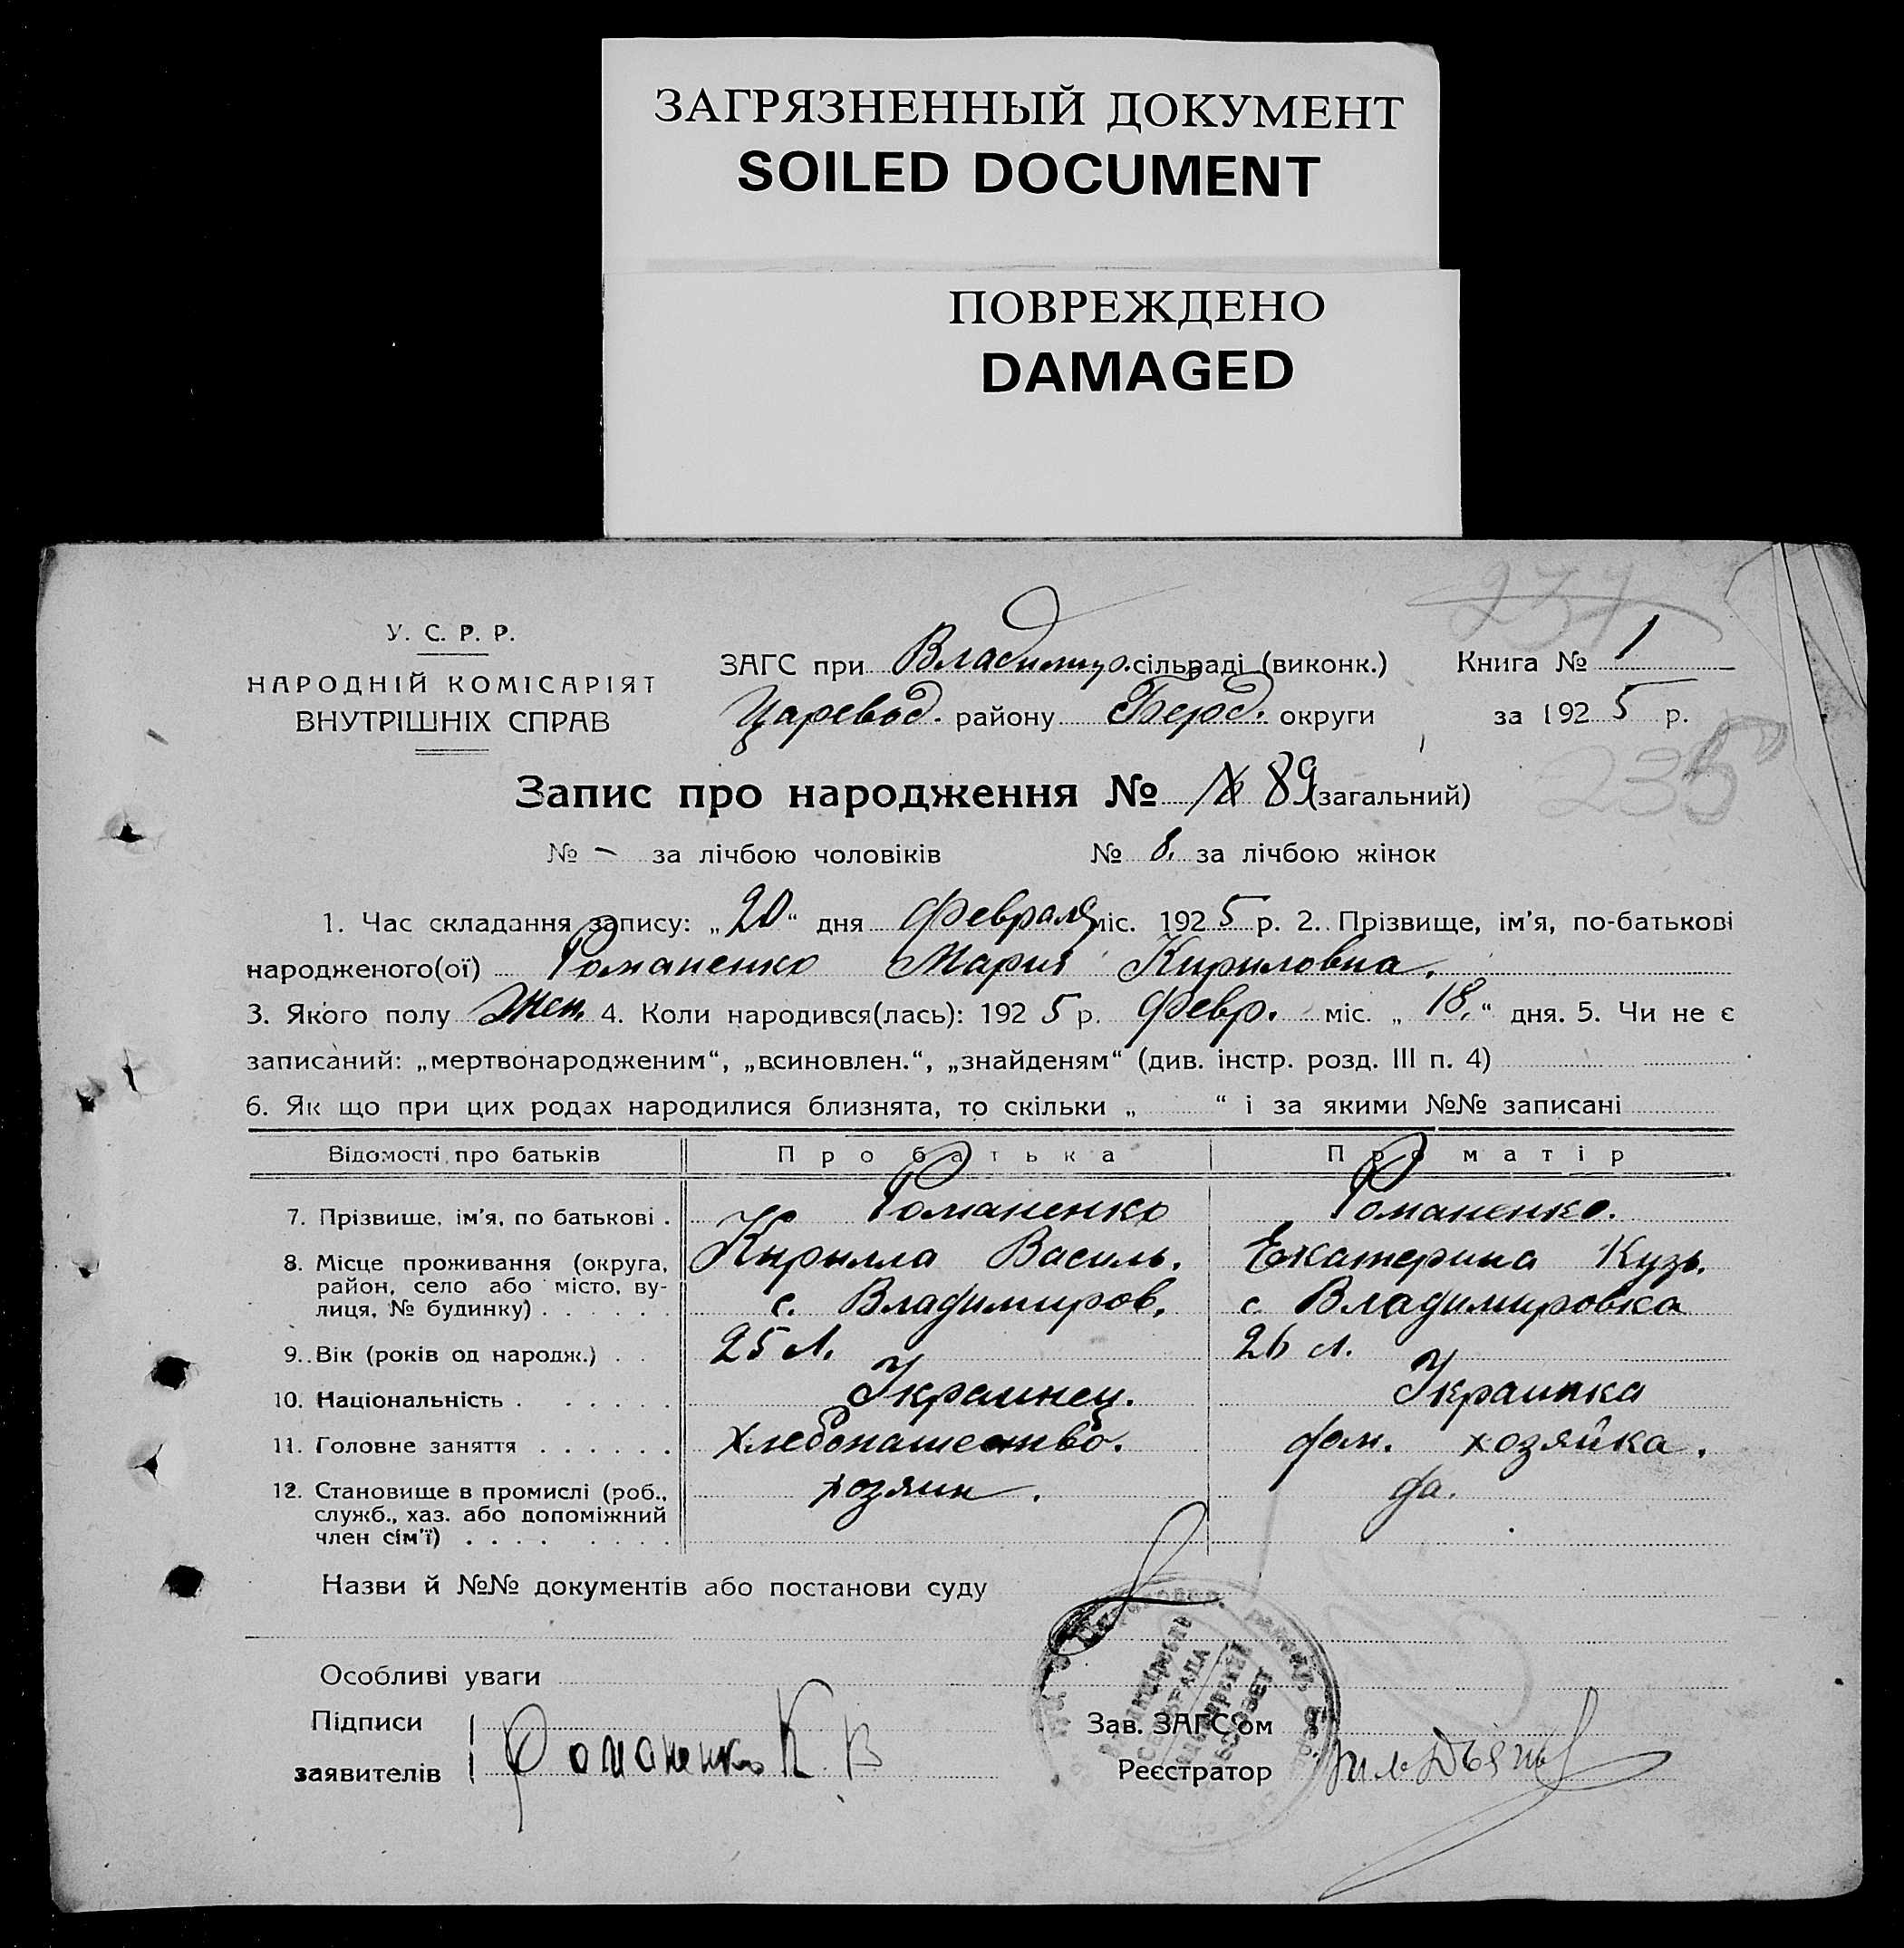 ЗАГРЯЗНЕННЫЙ ДОКУМЕНТ
SOILED DOCUMENT
ПОВРЕЖДЕНО
DAMAGED
237
У. С. Р. Р.
НАРОДНІЙ КОМІСАРІЯТ
ВНУТРІШНІХ СПРАВ
ЗАГС при Владимиро. сільраді (виконк.) Книга № 1
Царевод. району Берд. округи за 1925 р.
235
Запис про народження № 89 (загальний)
№ - за лічбою чоловіків № 8. за лічбою жінок
1. Час складання запису: „20“ дня Февраля міс. 1925 р. 2. Прізвище, ім'я, по-батькові
народженого(ої) Романенко Мария Кириловна.
3. Якого полу Жен. 4. Коли народився(лась): 1925 р. Февр. міс. „18.“ дня. 5. Чи не є
записаний: „мертвонародженим“, „всиновлен.“, „знайденям“ (див. інстр. розд. III п. 4)
6. Як що при цих родах народилися близнята, то скільки „ “ і за якими №№ записані
Відомості про батьків Про батька Про матір
7. Прізвище, ім'я, по батькові . Романенко Романенко.
Кирилла Василь. Екатерина Кузь.
8. Місце проживання (округа, район, село або місто, ву-
лиця, № будинку) . . . . . с. Владимиров. с Владимировка
9. Вік (років од народж.) . . 25 л. 26 л.
10. Національність . . . . . . Украинец. Украинка
11. Головне заняття . . . . . . Хлебопашество. дом. хозяйка.
12. Становище в промислі (роб., хозяин. да.
служб., хаз. або допоміжний
член сім'ї) . . . . . . . .
Назви й №№ документів або постанови суду
Особливі уваги
Підписи
заявителів Романенко К. В
Зав. ЗАГС'ом
Реєстратор